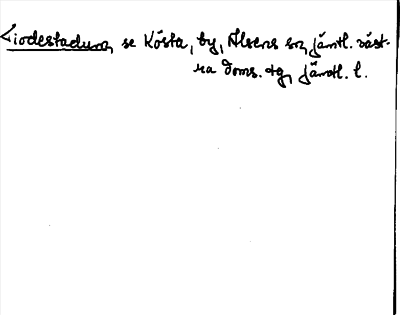 Liodestadum, se Kösta, by, Alsens sn, Jämtl. väst-
ra doms. tg, Jämtl. l.